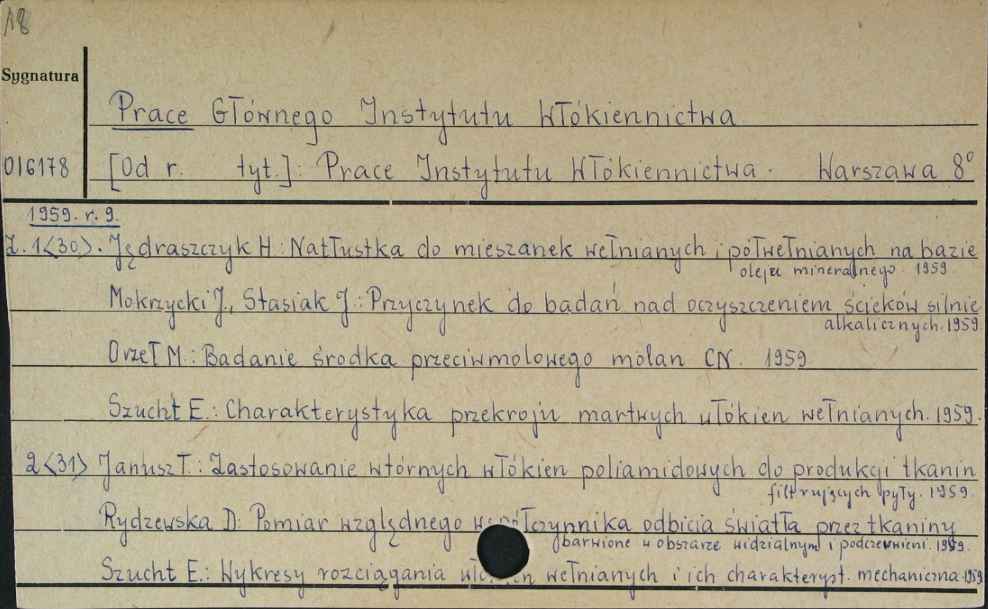 18
Sygnatura
Prace Głównego Instytutu Włókiennictwa
016178 [Od r. tyt.]: Prace Instytutu Włókiennictwa. Warszawa 8°
1959. r. 9.
Z. 1<30>. Jędraszczyk H: Natłustka do mieszanek wełnianych i półwełnianych na bazie
oleju mineralnego. 1959.
Mokrzycki J., Stasiak J.: Przyczynek do badań nad oczyszczeniem ścieków silnie
alkalicznych. 1959.
Orzeł M.: Badanie środka przeciwmolowego molan CN. 1959
Szucht E.: Charakterystyka przekroju martwych włókien wełnianych. 1959.
2<31> Janusz T.: Zastosowanie wtórnych włókien poliamidowych do produkcji tkanin
filtrujących pyły. 1959.
Rydzewska D: Pomiar względnego współczynnika odbicia światła przez tkaniny
barwione w obszarze widzialnym i podczerwieni. 1959.
Szucht E.: Wykresy rozciągania włókien wełnianych i ich charakteryst. mechaniczna. 1959